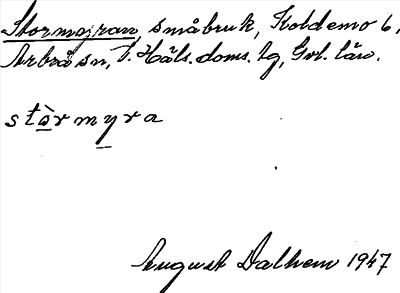 Stormyran, småbruk, Koldemo 6,
Arbrå sn, S. Häls. doms. tg, Gvl. län.
stòrmyra
August Dalhem 1947